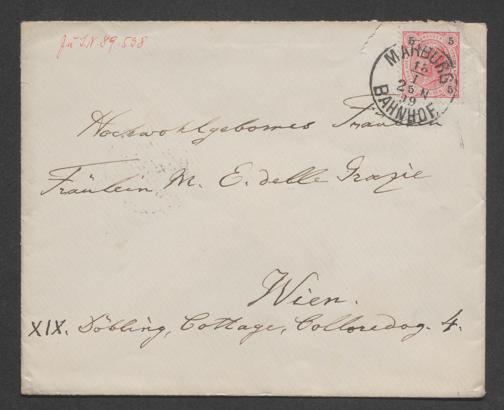 Zu I.N. 89.538
5 5
5
MARBURG
BAHNHOF
Hochwohlgebornes Fräulein
Fräulein M. E. delle Grazie
Wien.
XIX. Döbling, Cottage, Colloredog. 4.